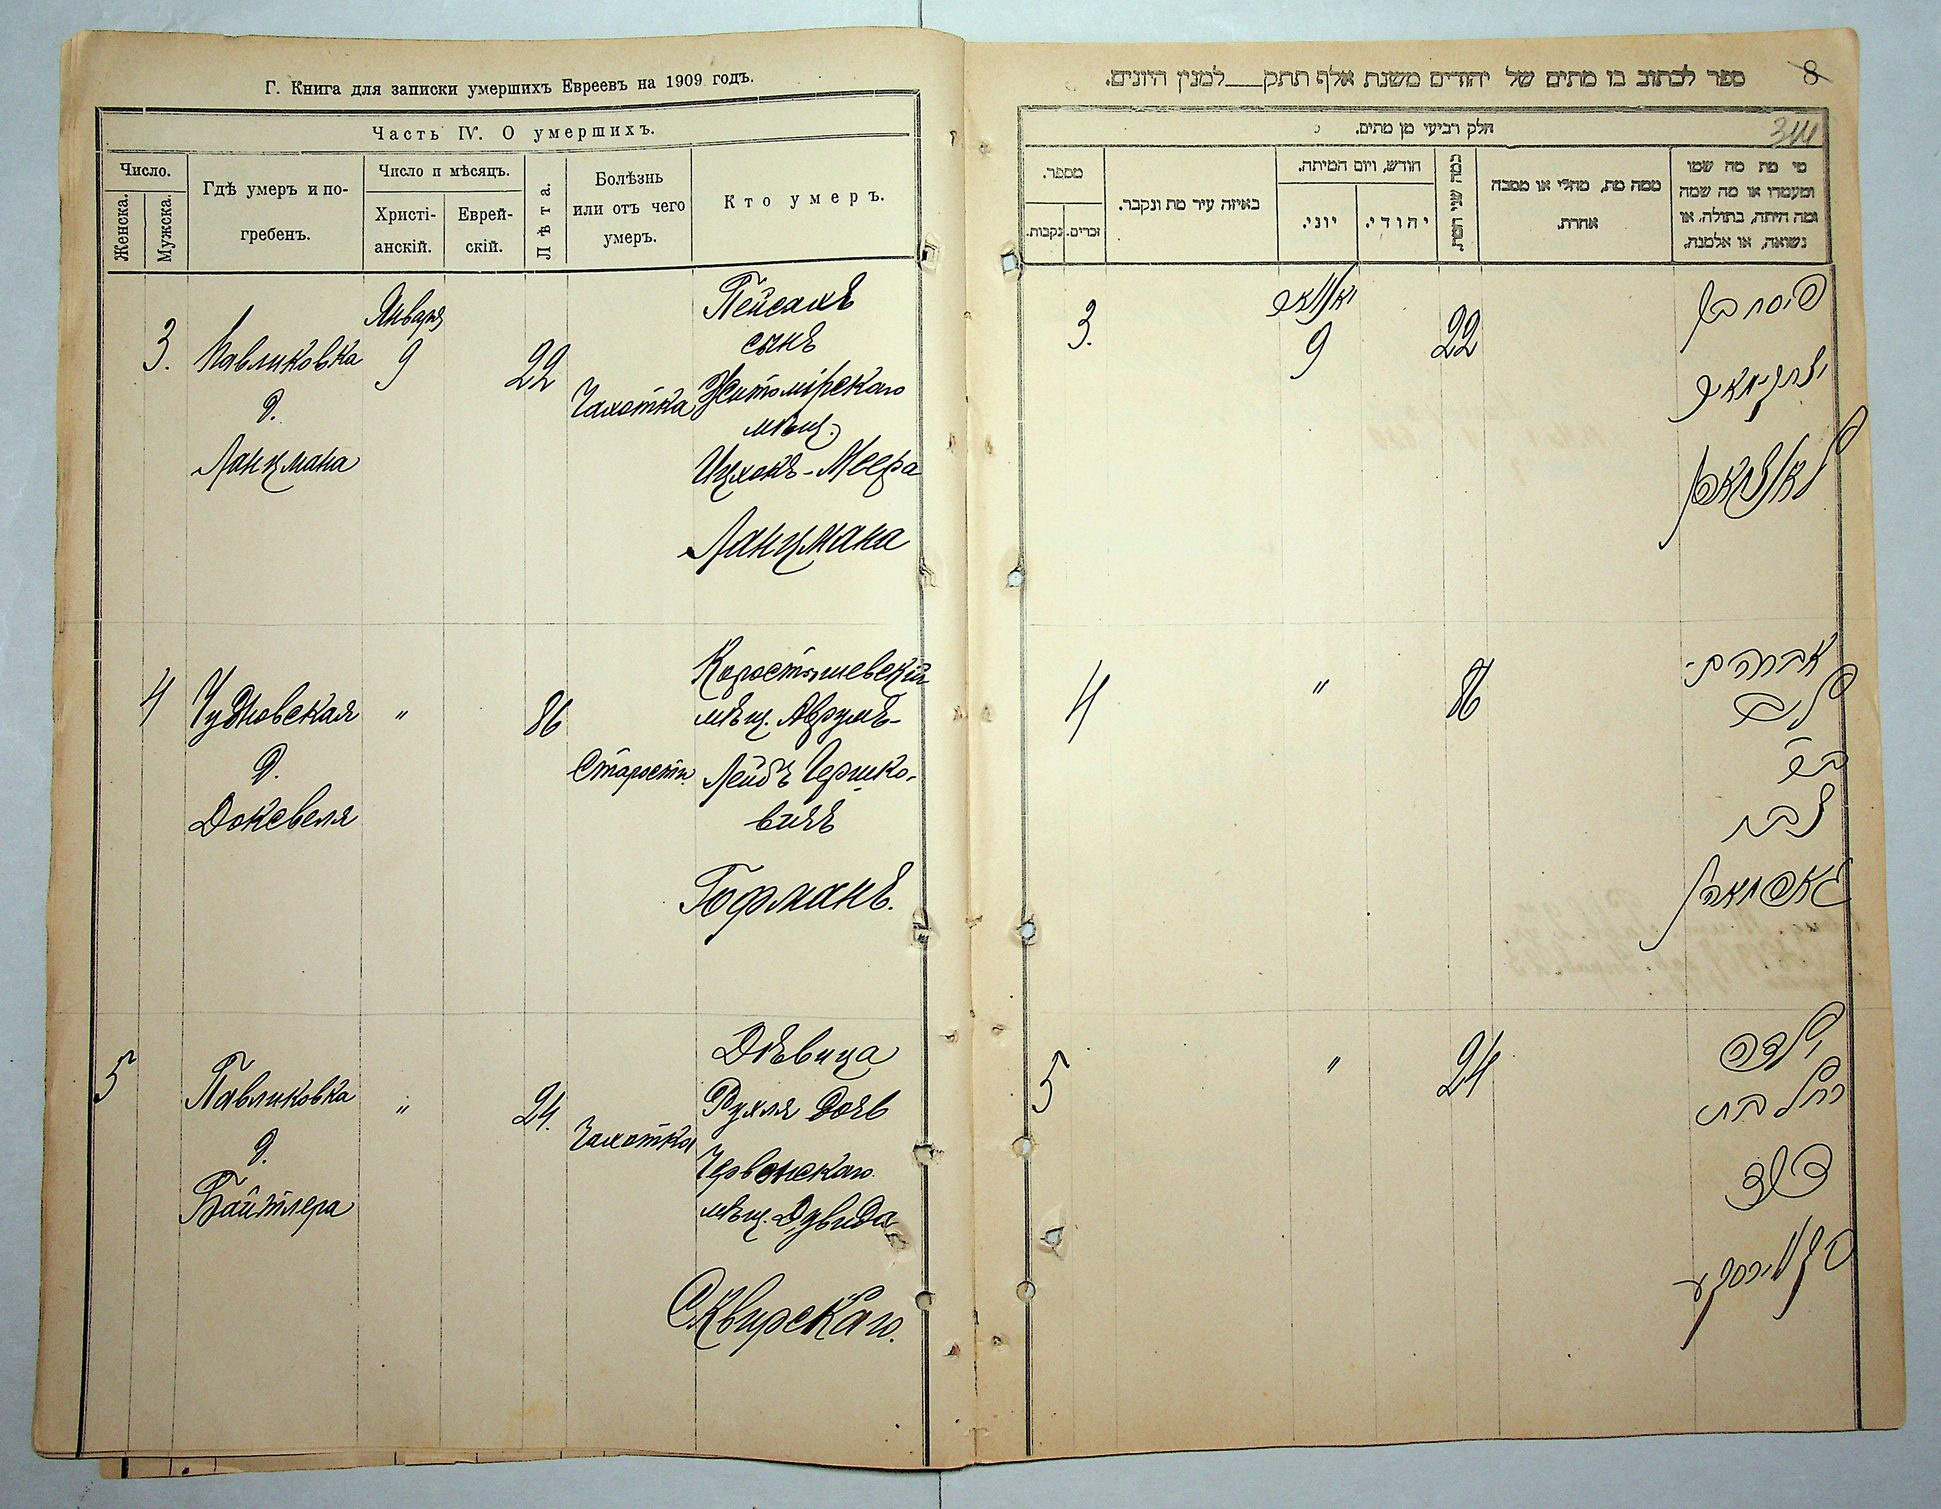 Г. Книга для записки умершихъ Евреевъ на 1909 годъ.
Часть IV. О умершихъ.
Число.
Женска.
Мужска.
Гдѣ умеръ и по-
гребенъ.
Число и мѣсяцъ.
Христі-
анскій.
Еврей-
скій.
Лѣта.
Болѣзнь
или отъ чего
умеръ.
Кто умеръ.
3.
Павликовка
д.
Ланцмана
Января
9
22
Чахотка
Пейсахъ
сынъ
Житомірскаго
мѣщ.
Ицхокъ-Меера
Ланцмана
4
Чудновская
д.
Доксвеля
"
86
Старости
Коростышевскій
мѣщ. Аврумъ-
Лейбъ Гершко-
вичъ
Гофманъ.
5
Павликовка
д.
Байтлера
"
24.
Чахотка
Дѣвица
Рухля дочь
Червонскаго
мѣщ. Дувида
Сквирскаго.
8
ספר לכתוב בו מתים של יהודים משנת אלף תתק למנין היונים.
344
חלק רביעי מן מתים.
מי מת מה שמו
ומעמדו או מה שמה
ומה היתה, בתולה, או
נשואה, או אלמנה.
ממה מת, מחלי או מסבה
אחרת.
כמה שני המת.
חודש, ויום המיתה.
יהודי.
יוני.
באיזה עיר מת ונקבר.
מספר.
זכרים.
נקבות.
פיסח בן
יצחק מאיר
לאנצמאן
22
יאנואר
9
3.
אברהם
ליב
ב"ר
צבי
גאפמאן
86
"
4
ילדה
רחל בת
דוד
סקווירסקי
24
"
5